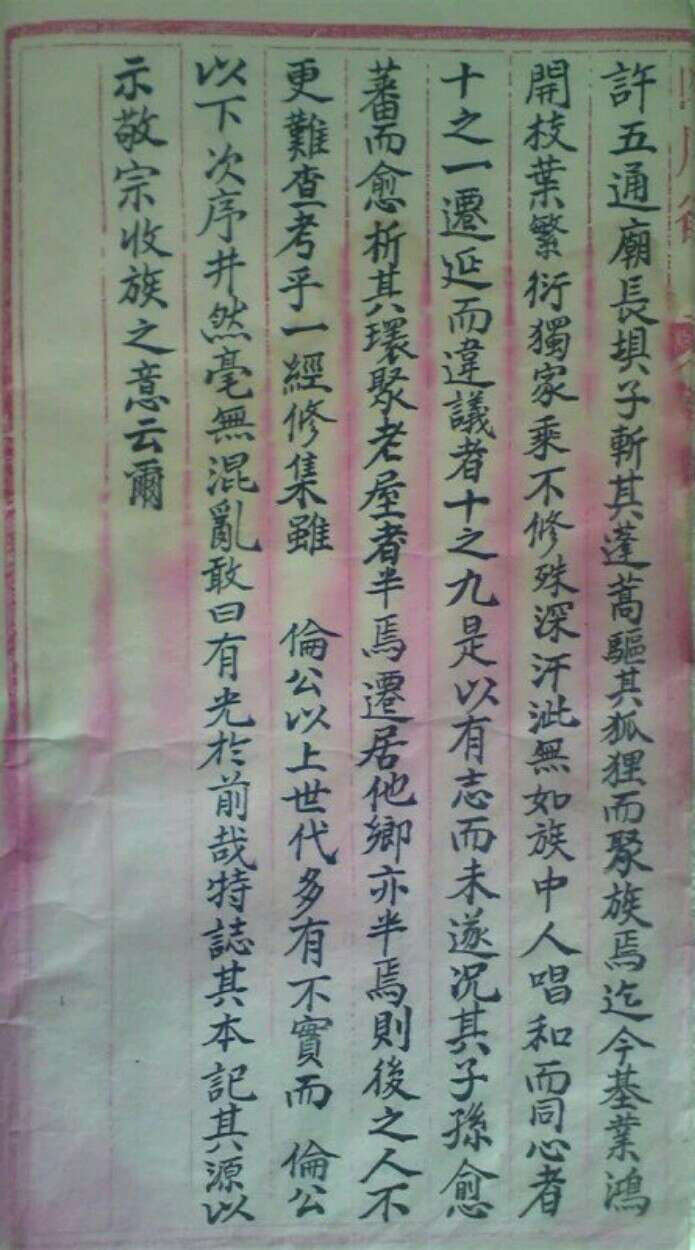 許五通廟長垻子斬其蓬蒿驅其狐狸而聚族焉迄今基業鴻
開枝葉繁衍獨家乘不修殊深汗泚無如族中人唱和而同心者
十之一遷延而違議者十之九是以有志而未遂况其子孫愈
蕃而愈析其環聚老屋者半焉遷居他鄉亦半焉則後之人不
更難查考乎一經修集雖 倫公以上世代多有不實而 倫公
以下次序井然毫無混亂敢曰有光於前哉特誌其本記其源以
示敬宗收族之意云爾